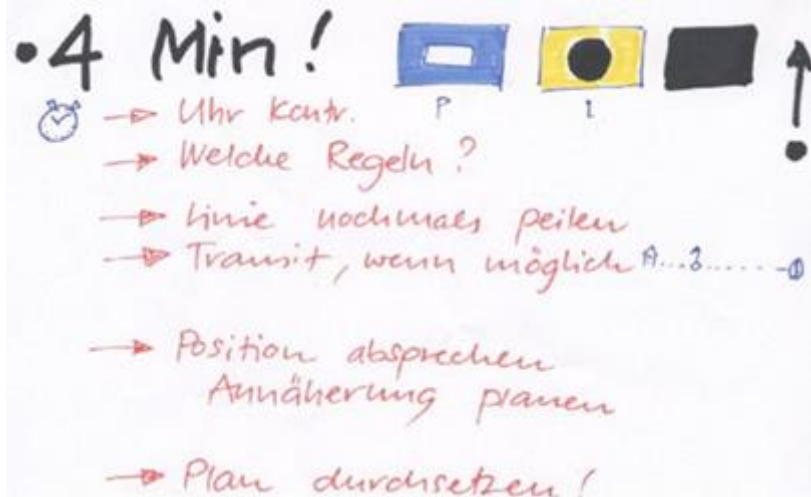 • 4 Min !
P I
→ Uhr Kontr.
→ Welche Regeln ?
→ Linie nochmals peilen
→ Transit, wenn möglich
→ Position absprechen
Annäherung planen
→ Plan durchsetzen !